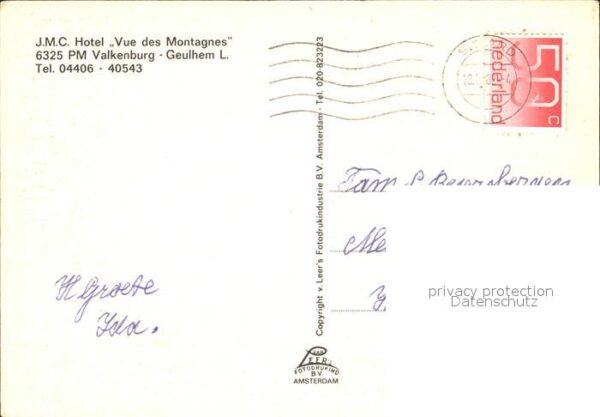 J.M.C. Hotel „Vue des Montagnes"
6325 PM Valkenburg - Geulhem L.
Tel. 04406 - 40543
50
C
nederland
Copyright v. Leer's Fotodrukindustrie B.V. Amsterdam - Tel. 020-823223
Fam
Me
privacy protection
Datenschutz
H Groete
Ida.
VAN
LEER
FOTODRUKIND
B.V.
AMSTERDAM